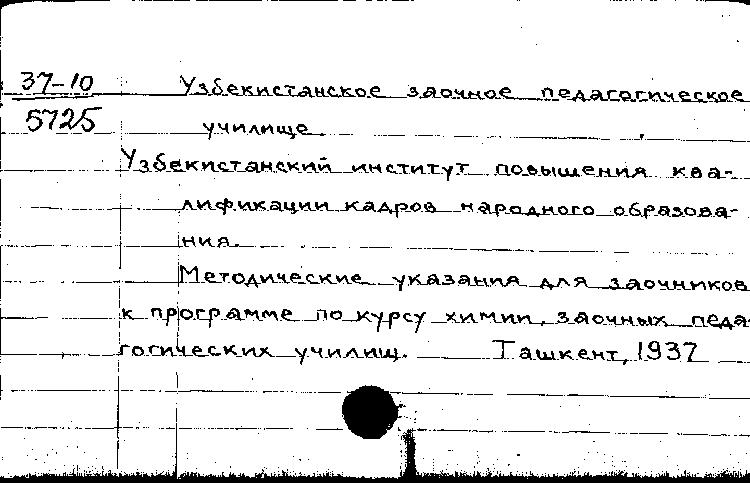 37-10 Узбекистанское заочное педагогическое
5725 училище.
Узбекистанский институт повышения ква-
лификации кадров народного образова-
ния.
Методические указания для заочников
к программе по курсу химии, заочных педа-
гогических училищ. Ташкент, 1937